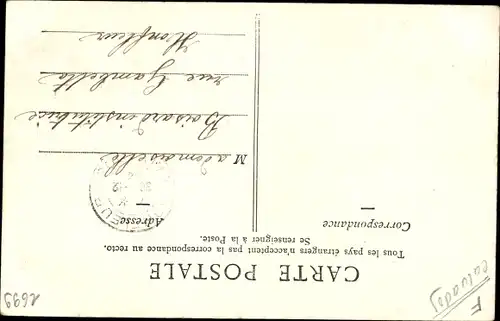 CARTE POSTALE
Tous les pays étrangers n'acceptent pas la correspondance au recto.
Se renseigner à la Poste.
Correspondance
Adresse
Mademoiselle
Boisard institutrice
rue Gambetta
Honfleur
F
calvados
1699